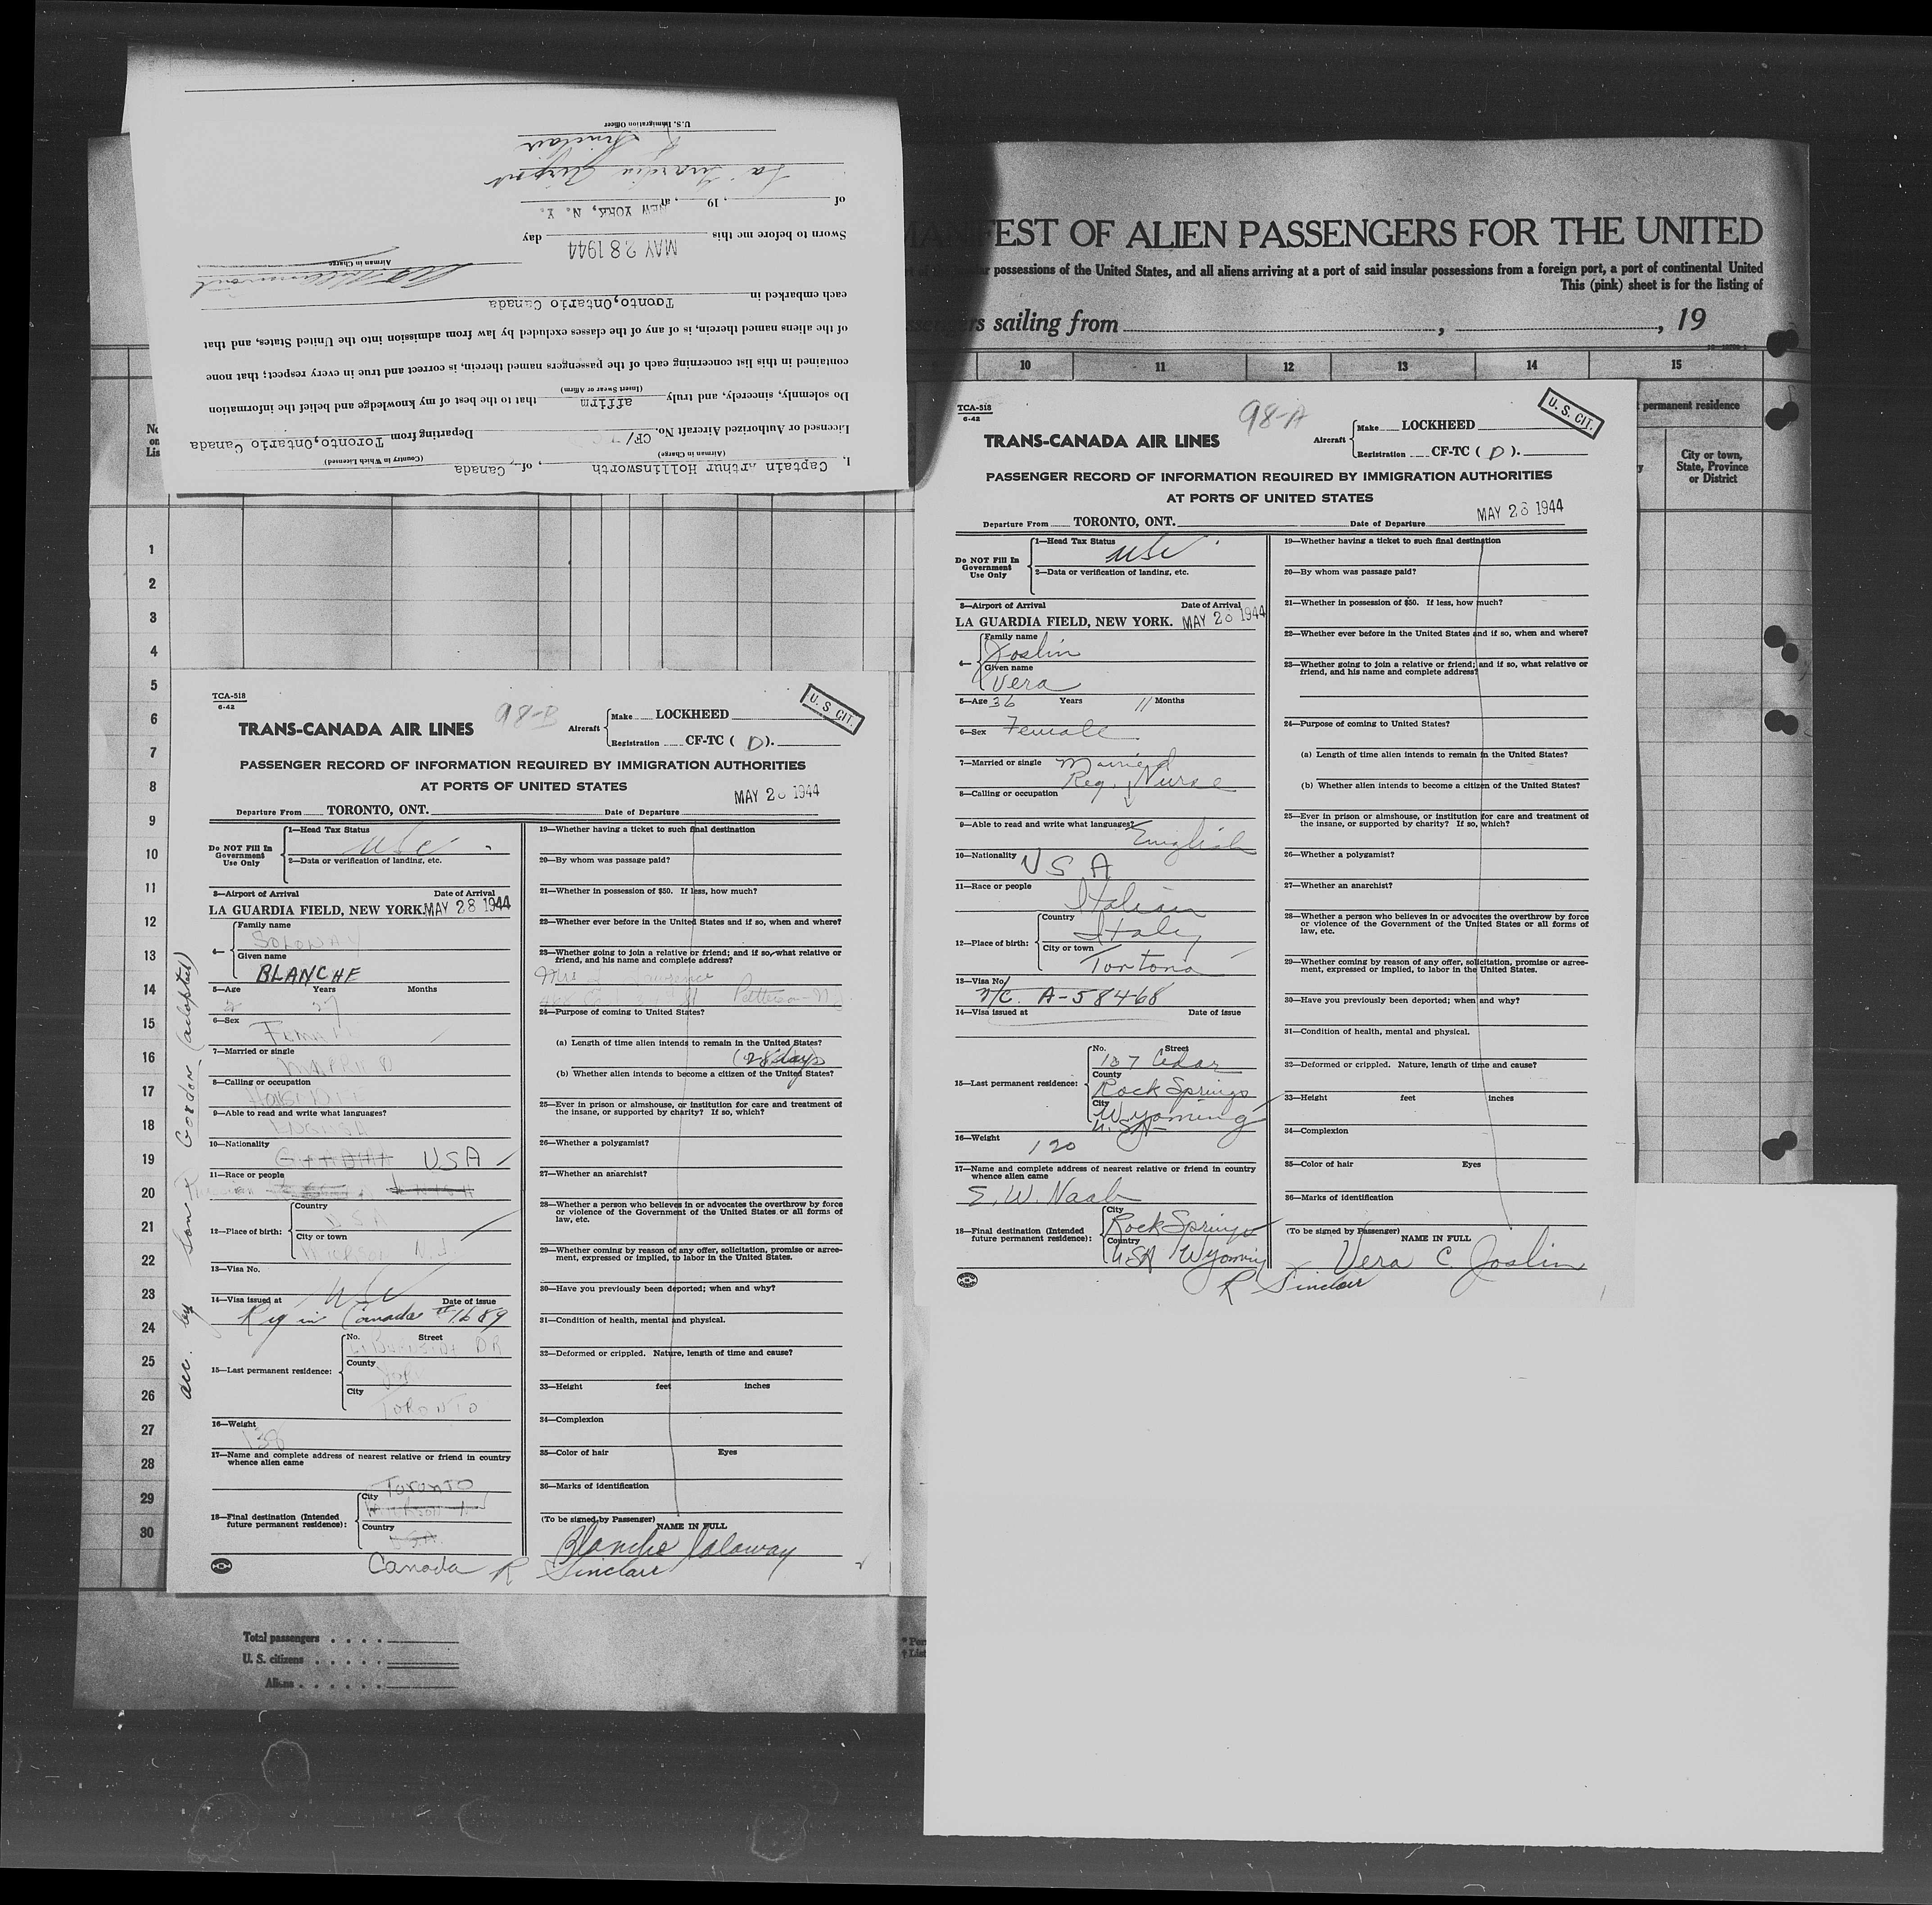 I, Captain Arthur Hollinsworth, of Canada
(Airman in Charge) (Country in Which Licensed)
Licensed or Authorized Aircraft No. CF/ Departing from Toronto, Ontario Canada
Do solemnly, sincerely, and truly affirm that to the best of my knowledge and belief the information
(Insert Swear or Affirm)
contained in this list concerning each of the passengers named therein, is correct and true in every respect; that none
of the aliens named therein, is of any of the classes excluded by law from admission into the United States, and that
each embarked in Toonto, Ontario Canada
Airman in Charge
Sworn to before me this MAY 28 1944 day
of , 19 , at NEW YORK, N. Y.
La Guardia Airport
R Sinclair
U.S. Immigration Officer
FEST OF ALIEN PASSENGERS FOR THE UNITED
possessions of the United States, and all aliens arriving at a port of said insular possessions from a foreign port, a port of continental United
This (pink) sheet is for the listing of
sailing from , , 19
10 11 12 13 14 15
permanent residence
City or town,
State, Province
or District
No.
on
List
1
2
3
4
5
6
7
8
9
10
11
12
13
14
15
16
17
18
19
20
21
22
23
24
25
26
27
28
29
30
TCA-518
6-42
98-B
U. S. CIT.
TRANS-CANADA AIR LINES
Aircraft
Make LOCKHEED
Registration CF-TC ( D ).
PASSENGER RECORD OF INFORMATION REQUIRED BY IMMIGRATION AUTHORITIES
AT PORTS OF UNITED STATES
MAY 28 1944
Departure From TORONTO, ONT. Date of Departure
Do NOT Fill In
Government
Use Only
1—Head Tax Status
USC
2—Data or verification of landing, etc.
3—Airport of Arrival Date of Arrival
LA GUARDIA FIELD, NEW YORK. MAY 28 1944
4—
Family name
SOLOWAY
Given name
BLANCHE
5—Age Years Months
27
6—Sex
FEMALE
7—Married or single
MARRIED
8—Calling or occupation
HOUSEWIFE
9—Able to read and write what languages?
ENGLISH
10—Nationality
USA
11—Race or people
12—Place of birth:
Country
USA
City or town
N.J.
13—Visa No.
USC
14—Visa issued at Date of issue
Reg in Canada
15—Last permanent residence:
No. Street
DR
County
York
City
TORONTO
16—Weight
138
17—Name and complete address of nearest relative or friend in country
whence alien came
18—Final destination (Intended
future permanent residence):
Toronto
City
Country
U.S.A.
Canada
R Sinclair
acc. by son Gordon (adopted)
19—Whether having a ticket to such final destination
20—By whom was passage paid?
21—Whether in possession of $50. If less, how much?
22—Whether ever before in the United States and if so, when and where?
23—Whether going to join a relative or friend; and if so, what relative or
friend, and his name and complete address?
Mrs Lawrence
24—Purpose of coming to United States?
(a) Length of time alien intends to remain in the United States?
(28 days
(b) Whether alien intends to become a citizen of the United States?
25—Ever in prison or almshouse, or institution for care and treatment of
the insane, or supported by charity? If so, which?
26—Whether a polygamist?
27—Whether an anarchist?
28—Whether a person who believes in or advocates the overthrow by force
or violence of the Government of the United States or all forms of
law, etc.
29—Whether coming by reason of any offer, solicitation, promise or agree-
ment, expressed or implied, to labor in the United States.
30—Have you previously been deported; when and why?
31—Condition of health, mental and physical.
32—Deformed or crippled. Nature, length of time and cause?
33—Height feet inches
34—Complexion
35—Color of hair Eyes
36—Marks of identification
(To be signed by Passenger)
NAME IN FULL
Blanche Soloway
Total passengers . . . .
U. S. citizens . . . . .
Aliens . . . . . .
TCA-518
6-42
98-A
U. S. CIT.
TRANS-CANADA AIR LINES
Aircraft
Make LOCKHEED
Registration CF-TC ( D ).
PASSENGER RECORD OF INFORMATION REQUIRED BY IMMIGRATION AUTHORITIES
AT PORTS OF UNITED STATES
MAY 28 1944
Departure From TORONTO, ONT. Date of Departure
Do NOT Fill In
Government
Use Only
1—Head Tax Status
USC
2—Data or verification of landing, etc.
3—Airport of Arrival Date of Arrival
LA GUARDIA FIELD, NEW YORK. MAY 28 1944
4—
Family name
Joslin
Given name
Vera
5—Age 36 Years 11 Months
6—Sex Female
7—Married or single Married
8—Calling or occupation Reg. Nurse
9—Able to read and write what languages? English
10—Nationality USA
11—Race or people
Italian
12—Place of birth:
Country
Italy
City or town
Tortona
13—Visa No.
N/C. A-58468
14—Visa issued at Date of issue
15—Last permanent residence:
No. Street
137 Cedar
County
Rock Springs
City
Wyoming
U.S.A.
16—Weight
120
17—Name and complete address of nearest relative or friend in country
whence alien came
E. W. Naab
18—Final destination (Intended
future permanent residence):
City
Rock Springs
Country
USA Wyoming
R Sinclair
19—Whether having a ticket to such final destination
20—By whom was passage paid?
21—Whether in possession of $50. If less, how much?
22—Whether ever before in the United States and if so, when and where?
23—Whether going to join a relative or friend; and if so, what relative or
friend, and his name and complete address?
24—Purpose of coming to United States?
(a) Length of time alien intends to remain in the United States?
(b) Whether alien intends to become a citizen of the United States?
25—Ever in prison or almshouse, or institution for care and treatment of
the insane, or supported by charity? If so, which?
26—Whether a polygamist?
27—Whether an anarchist?
28—Whether a person who believes in or advocates the overthrow by force
or violence of the Government of the United States or all forms of
law, etc.
29—Whether coming by reason of any offer, solicitation, promise or agree-
ment, expressed or implied, to labor in the United States.
30—Have you previously been deported; when and why?
31—Condition of health, mental and physical.
32—Deformed or crippled. Nature, length of time and cause?
33—Height feet inches
34—Complexion
35—Color of hair Eyes
36—Marks of identification
(To be signed by Passenger)
NAME IN FULL
Vera C. Joslin